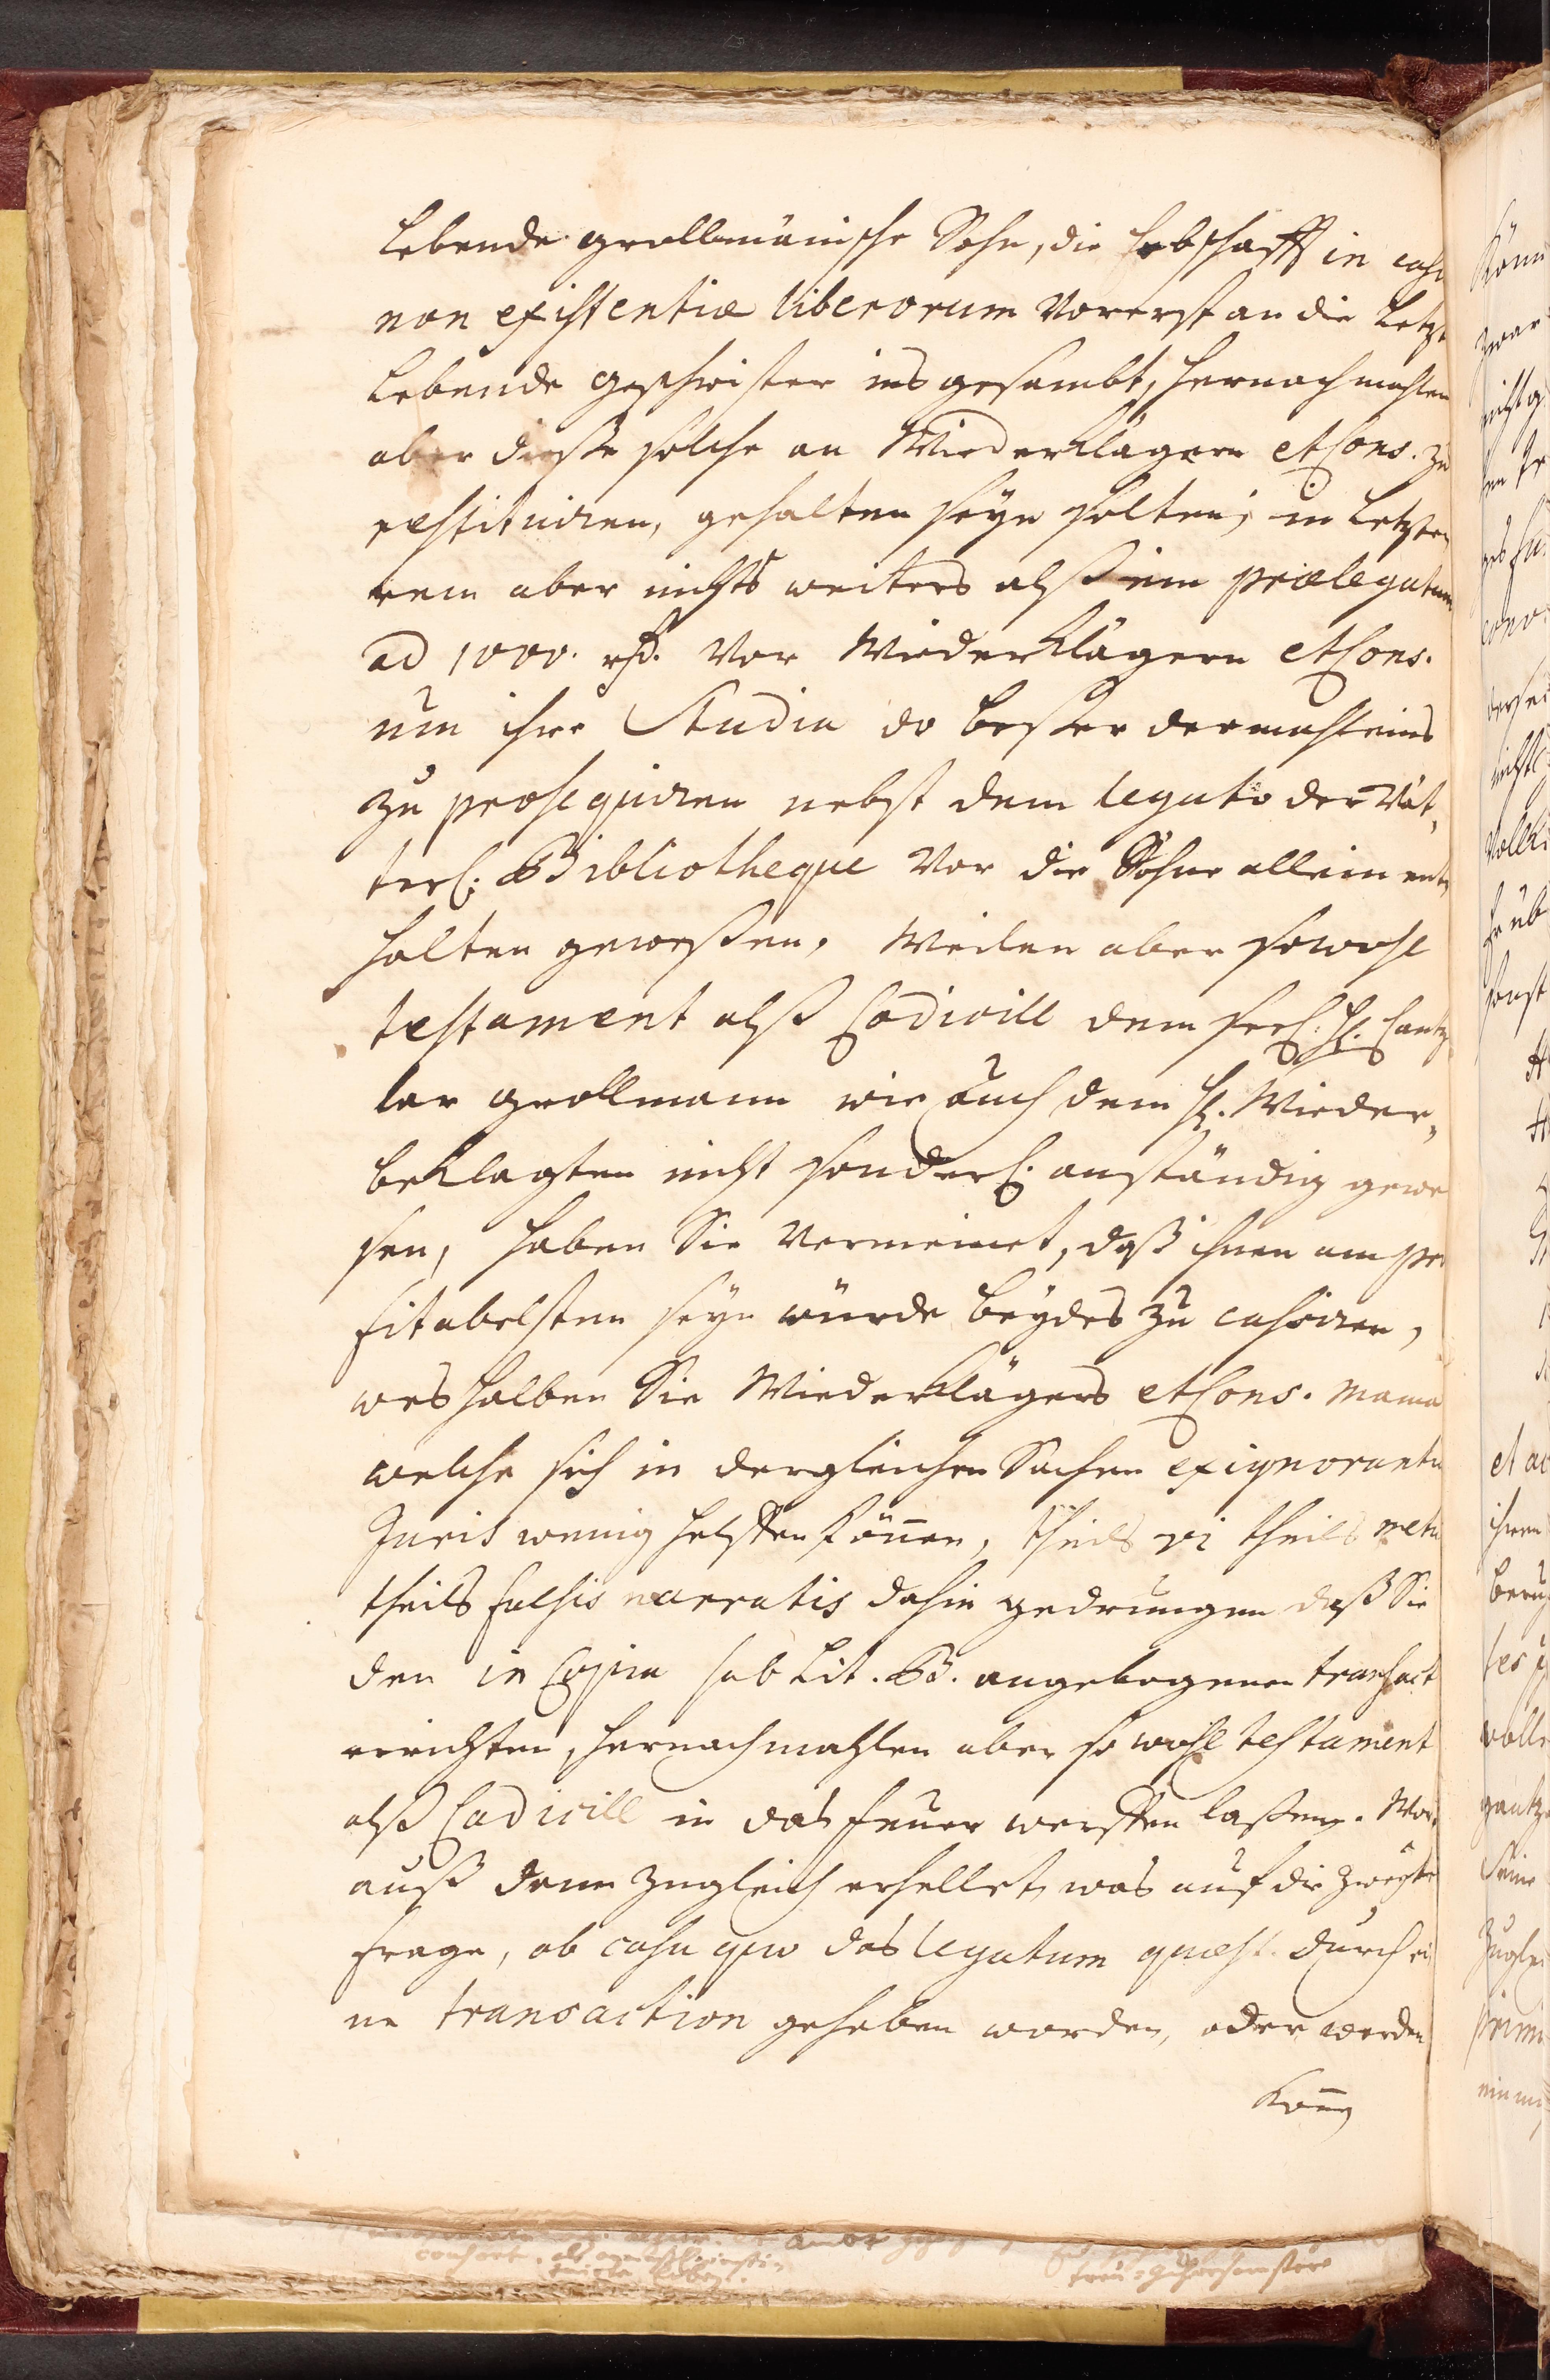 lebende grollmännische Sohn, die Erbschafft in casu
non existentiæ liberorum Vorerst an die Letzt
Lebende Geschwister ins gesambt, hernachmahlen
aber diese solche an Wiederklägern et Cons. zu
restituiren, gehalten seyn solten; in Letzte,
rem aber nichts weiters alß ein prælegatum
ad 1000. rth. Vor Wiederklägern et Cons.
um ihre Studia do beßer dermahleins
zu prosequiren nebst dem legato der Vät,
terl: Bibliotheque Vor die Söhne allein ent,
halten geweßen, Weilen aber sowohl
testament alß Codicill dem seel: H. Cantz
lar grollmann wie auch dem H. Wieder,
beklagten nicht sonderl: anständig gewe
sen, haben Sie Vermeinet, daß ihnen am pro
fitabelsten seyn würde beydes zu cassiren,
weshalben Sie Wiederklägers et Cons. Mama
welche sich in dergleichen Sachen ex ignorantia
Juris wenig helffen können, theils vi theils metu
theils falsis narratis dahin gedrungen daß Sie
den in Copia sub Lit. B. angebogenen transact
errichten, hernachmahlen aber so wohl testament
alß Codicill in das feuer werffen laßen. Wor,
auß dann zugleich erhellet, was auf die zweyte
frage, ob casu quo das legatum quæst. durch ei
ne transaction gehoben worden, oder werden
könn,